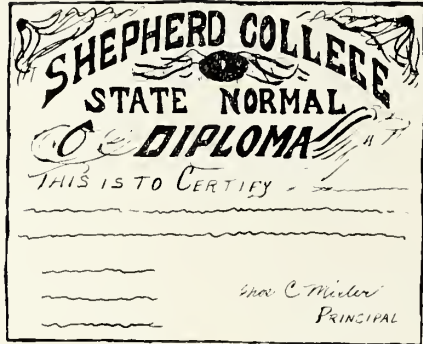 SHEPHERD COLLEGE
STATE NORMAL
DIPLOMA
THIS IS TO CERTIFY
C Miller
PRINCIPAL